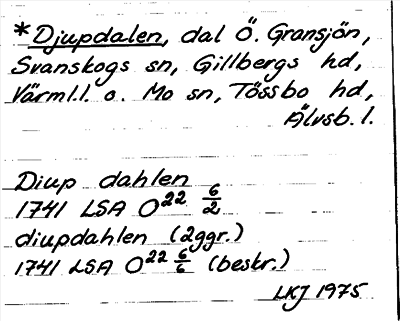 *Djupdalen, dal Ö. Gransjön,
Svanskogs sn, Gillbergs hd,
Värml.l. o. Mo sn, Tössbo hd,
Älvsb. l.
Diup dahlen
1741 LSA O22 6/2
diupdahlen (2ggr.)
1741 LSA O22 6/6 (beskr.)
LKJ 1975